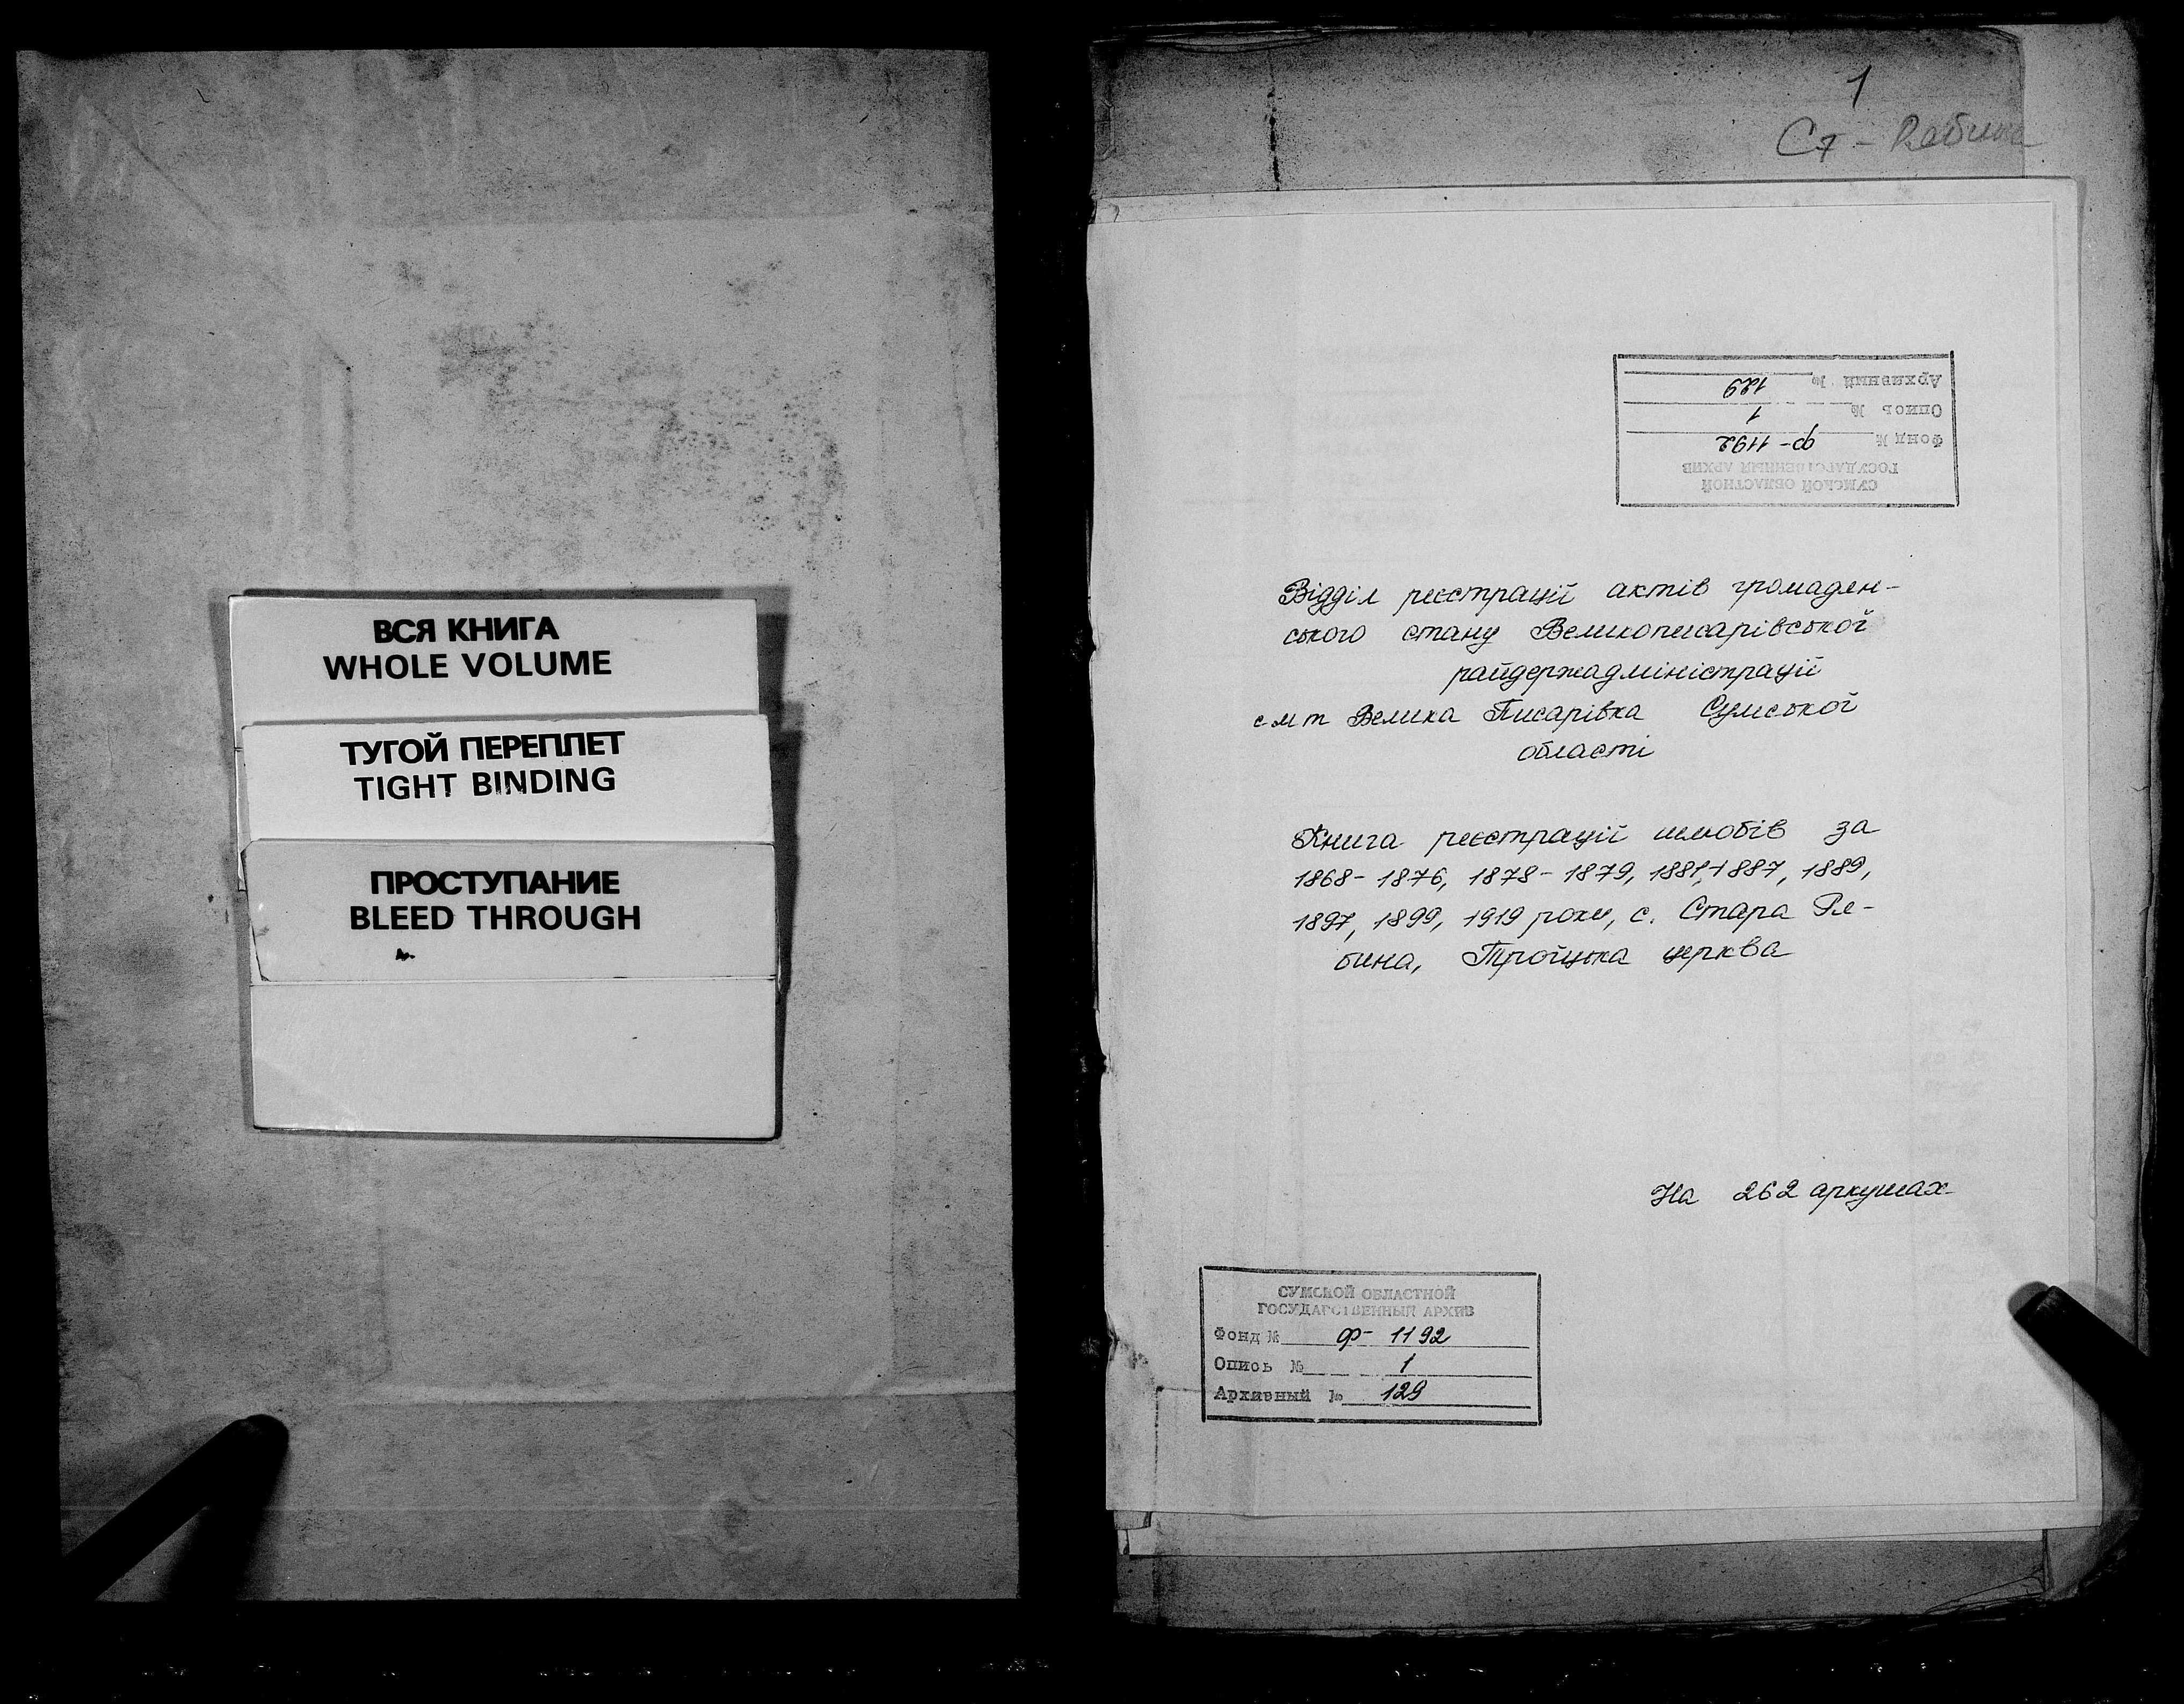 ВСЯ КНИГА
WHOLE VOLUME
ТУГОЙ ПЕРЕПЛЕТ
TIGHT BINDING
ПРОСТУПАНИЕ
BLEED THROUGH
1
Ст - Рябина
СУМСКОЙ ОБЛАСТНОЙ
ГОСУДАРСТВЕННЫЙ АРХИВ
Фонд № ф- 1192
Опись № 1
Архивный № 129
Відділ реєстрації актів громадян-
ського стану Великописарівської
райдержадміністрації
смт Велика Писарівка Сумської
області
Книга реєстрації шлюбів за
1868- 1876, 1878- 1879, 1881, 1887, 1889,
1897, 1899, 1919 роки, с. Стара Ря-
бина, Троїцька церква
На 262 аркушах
СУМСКОЙ ОБЛАСТНОЙ
ГОСУДАРСТВЕННЫЙ АРХИВ
Фонд № ф- 1192
Опись № 1
Архивный № 129